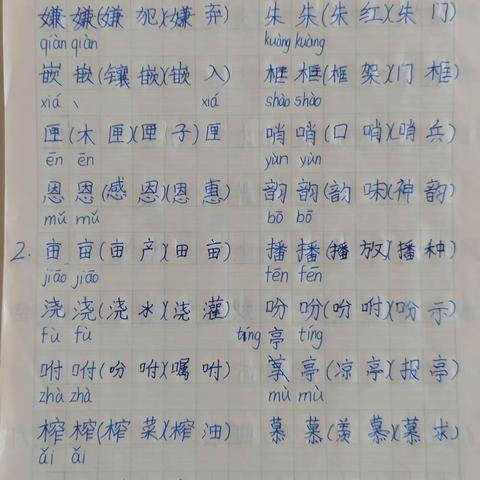 嫌 嫌(嫌 犯)(嫌 弃) 朱 朱(朱 红)(朱 门)
qiàn qiàn kuàng kuàng
嵌 嵌(镶 嵌)(嵌 入) 框 框(框 架)(门 框)
xiá 、 xiá shào shào
匣(木 匣)(匣 子)匣 哨 哨(口 哨)(哨 兵)
ēn ēn yùn yùn
恩 恩(感 恩)(恩 惠) 韵 韵(韵 味)(神 韵)
mǔ mǔ bō bō
2. 亩 亩(亩 产)(田 亩) 播 播(播 放)(播 种)
jiāo jiāo fēn fēn
浇 浇(浇 水)(浇 灌) 吩 吩(吩 咐)(吩 示)
fù fù tíng 亭 tíng
咐 咐(吩 咐)(嘱 咐) 亭(凉 亭)(报 亭)
zhà zhà mù mù
榨 榨(榨 菜)(榨 油) 慕 慕(羡 慕)(慕 求)
ǎi ǎi